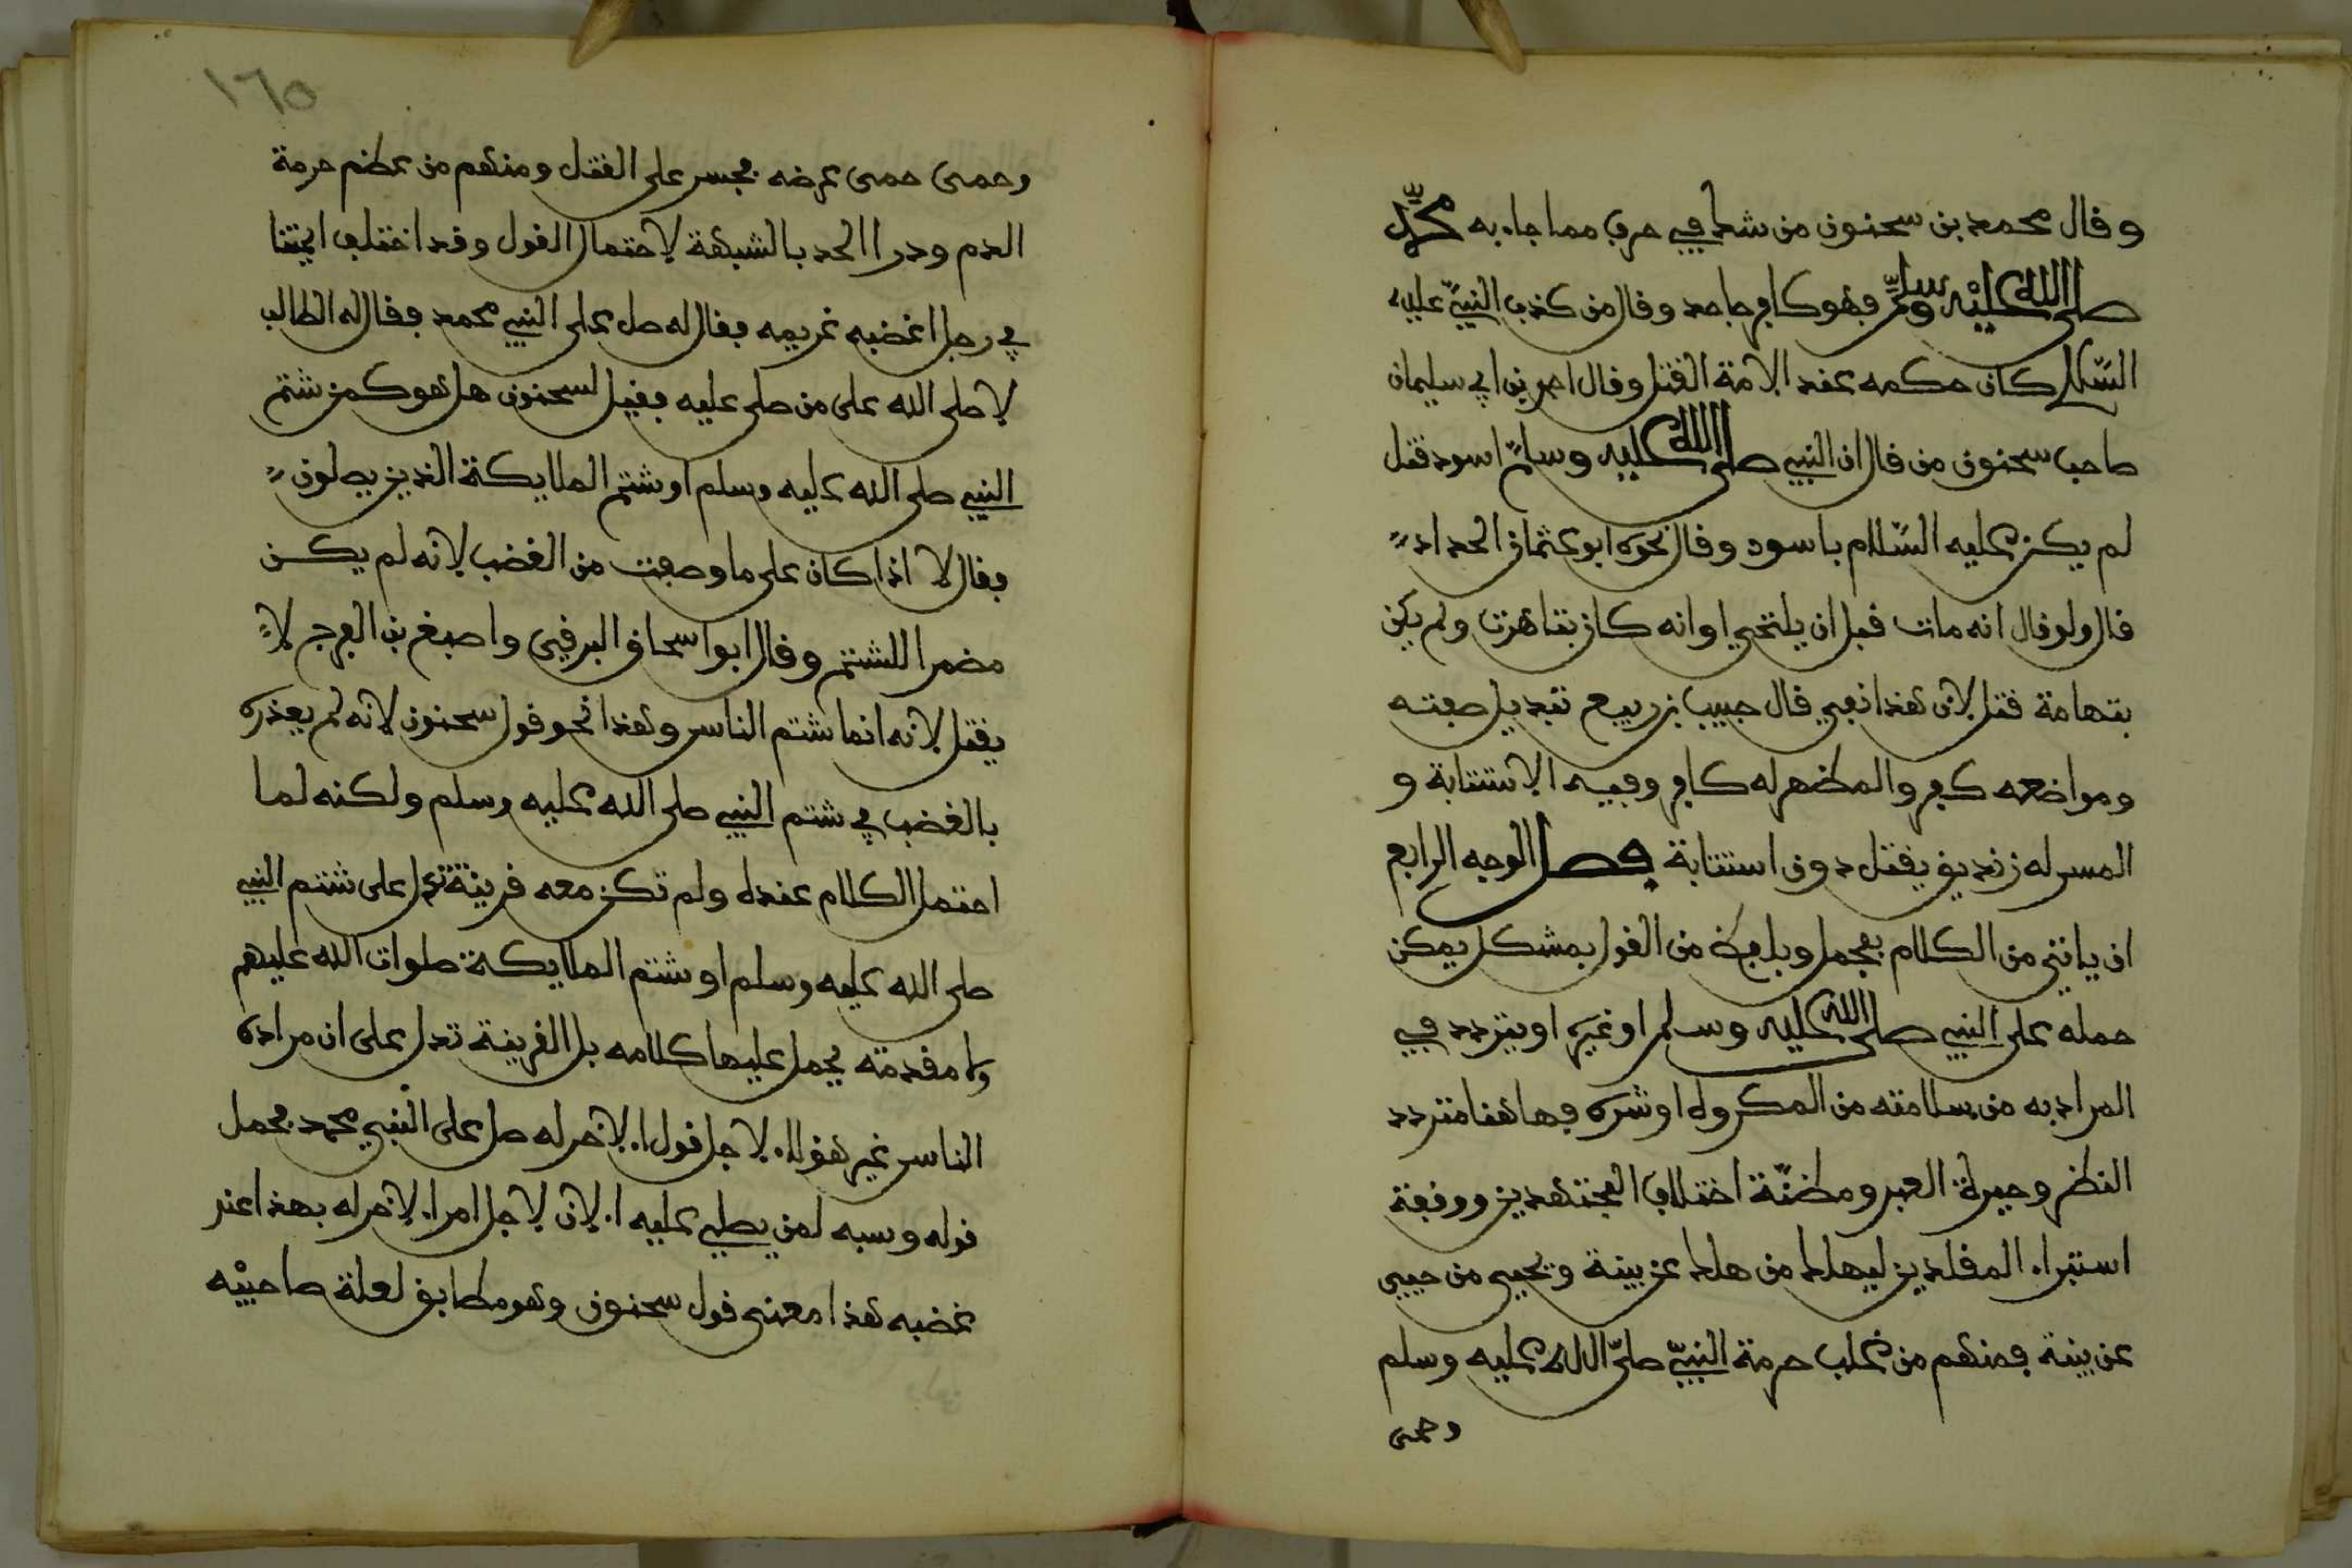 وقال محمد بن سحنون من شك في حرف مما جاء به محمد
صلى الله عليه وسلم فهو كافر جاحد وقال من كذب النبي عليه
السلام كان حكمه عند الامة القتل وقال احمد بن ابي سليمان
صاحب سحنون من قال ان النبي صلى الله عليه وسلم اسود قتل
لم يكن عليه السلام باسود وقال نحوه ابو عثمان الحداد
قال ولو قال انه مات قبل ان يلتحي او انه كان بتاهرت ولم يكن
بتهامة قتل لان هذا نفي قال حبيب بن ربيع تبديل صفته
ومواضعه كفر والمظهر له كافر وفيه الاستتابة و
المسر له زنديق يقتل دون استتابة فصل الوجه الرابع
ان ياتي من الكلام بمجمل وبلفظ من القول بمشكل يمكن
حمله على النبي صلى الله عليه وسلم او غيره او يتردد في
المراد به من سلامته من المكروه او شره فهاهنا متردد
النظر وحيرة العبر ومظنة اختلاف المجتهدين ووقفة
استبراء المقلدين ليهلك من هلك عن بينة ويحيى من حيي
عن بينة فمنهم من غلب حرمة النبي صلى الله عليه وسلم
وحمى
١٦٥
وحمى حمى عرضه فجسر على القتل ومنهم من عظم حرمة
الدم ودرا الحد بالشبهة لاحتمال القول وقد اختلف ايمتنا
في رجل اغضبه غريمه فقال له صل على النبي محمد فقال له الطالب
لا صلى الله على من صلى عليه فقيل لسحنون هل هو كمن شتم
النبي صلى الله عليه وسلم او شتم الملايكة الذين يصلون
فقال لا اذا كان على ما وصفت من الغضب لانه لم يكن
مضمرا للشتم وقال ابو اسحاق البرقي واصبغ بن الفرج لا
يقتل لانه انما شتم الناس وهذا نحو قول سحنون لانه لم يعذره
بالغضب في شتم النبي صلى الله عليه وسلم ولكنه لما
احتمل الكلام عنده ولم تكن معه قرينة تدل على شتم النبي
صلى الله عليه وسلم او شتم الملايكة صلوات الله عليهم
ولا مقدمة يحمل عليها كلامه بل القرينة تدل على ان مراده
الناس غير هؤلاء لاجل قول الاخر له صل على النبي محمد فحمل
قوله وسبه لمن يصلي عليه الان لاجل امر الاخر له بهذا عند
غضبه هذا معنى قول سحنون وهو مطابق لعلة صاحبيه